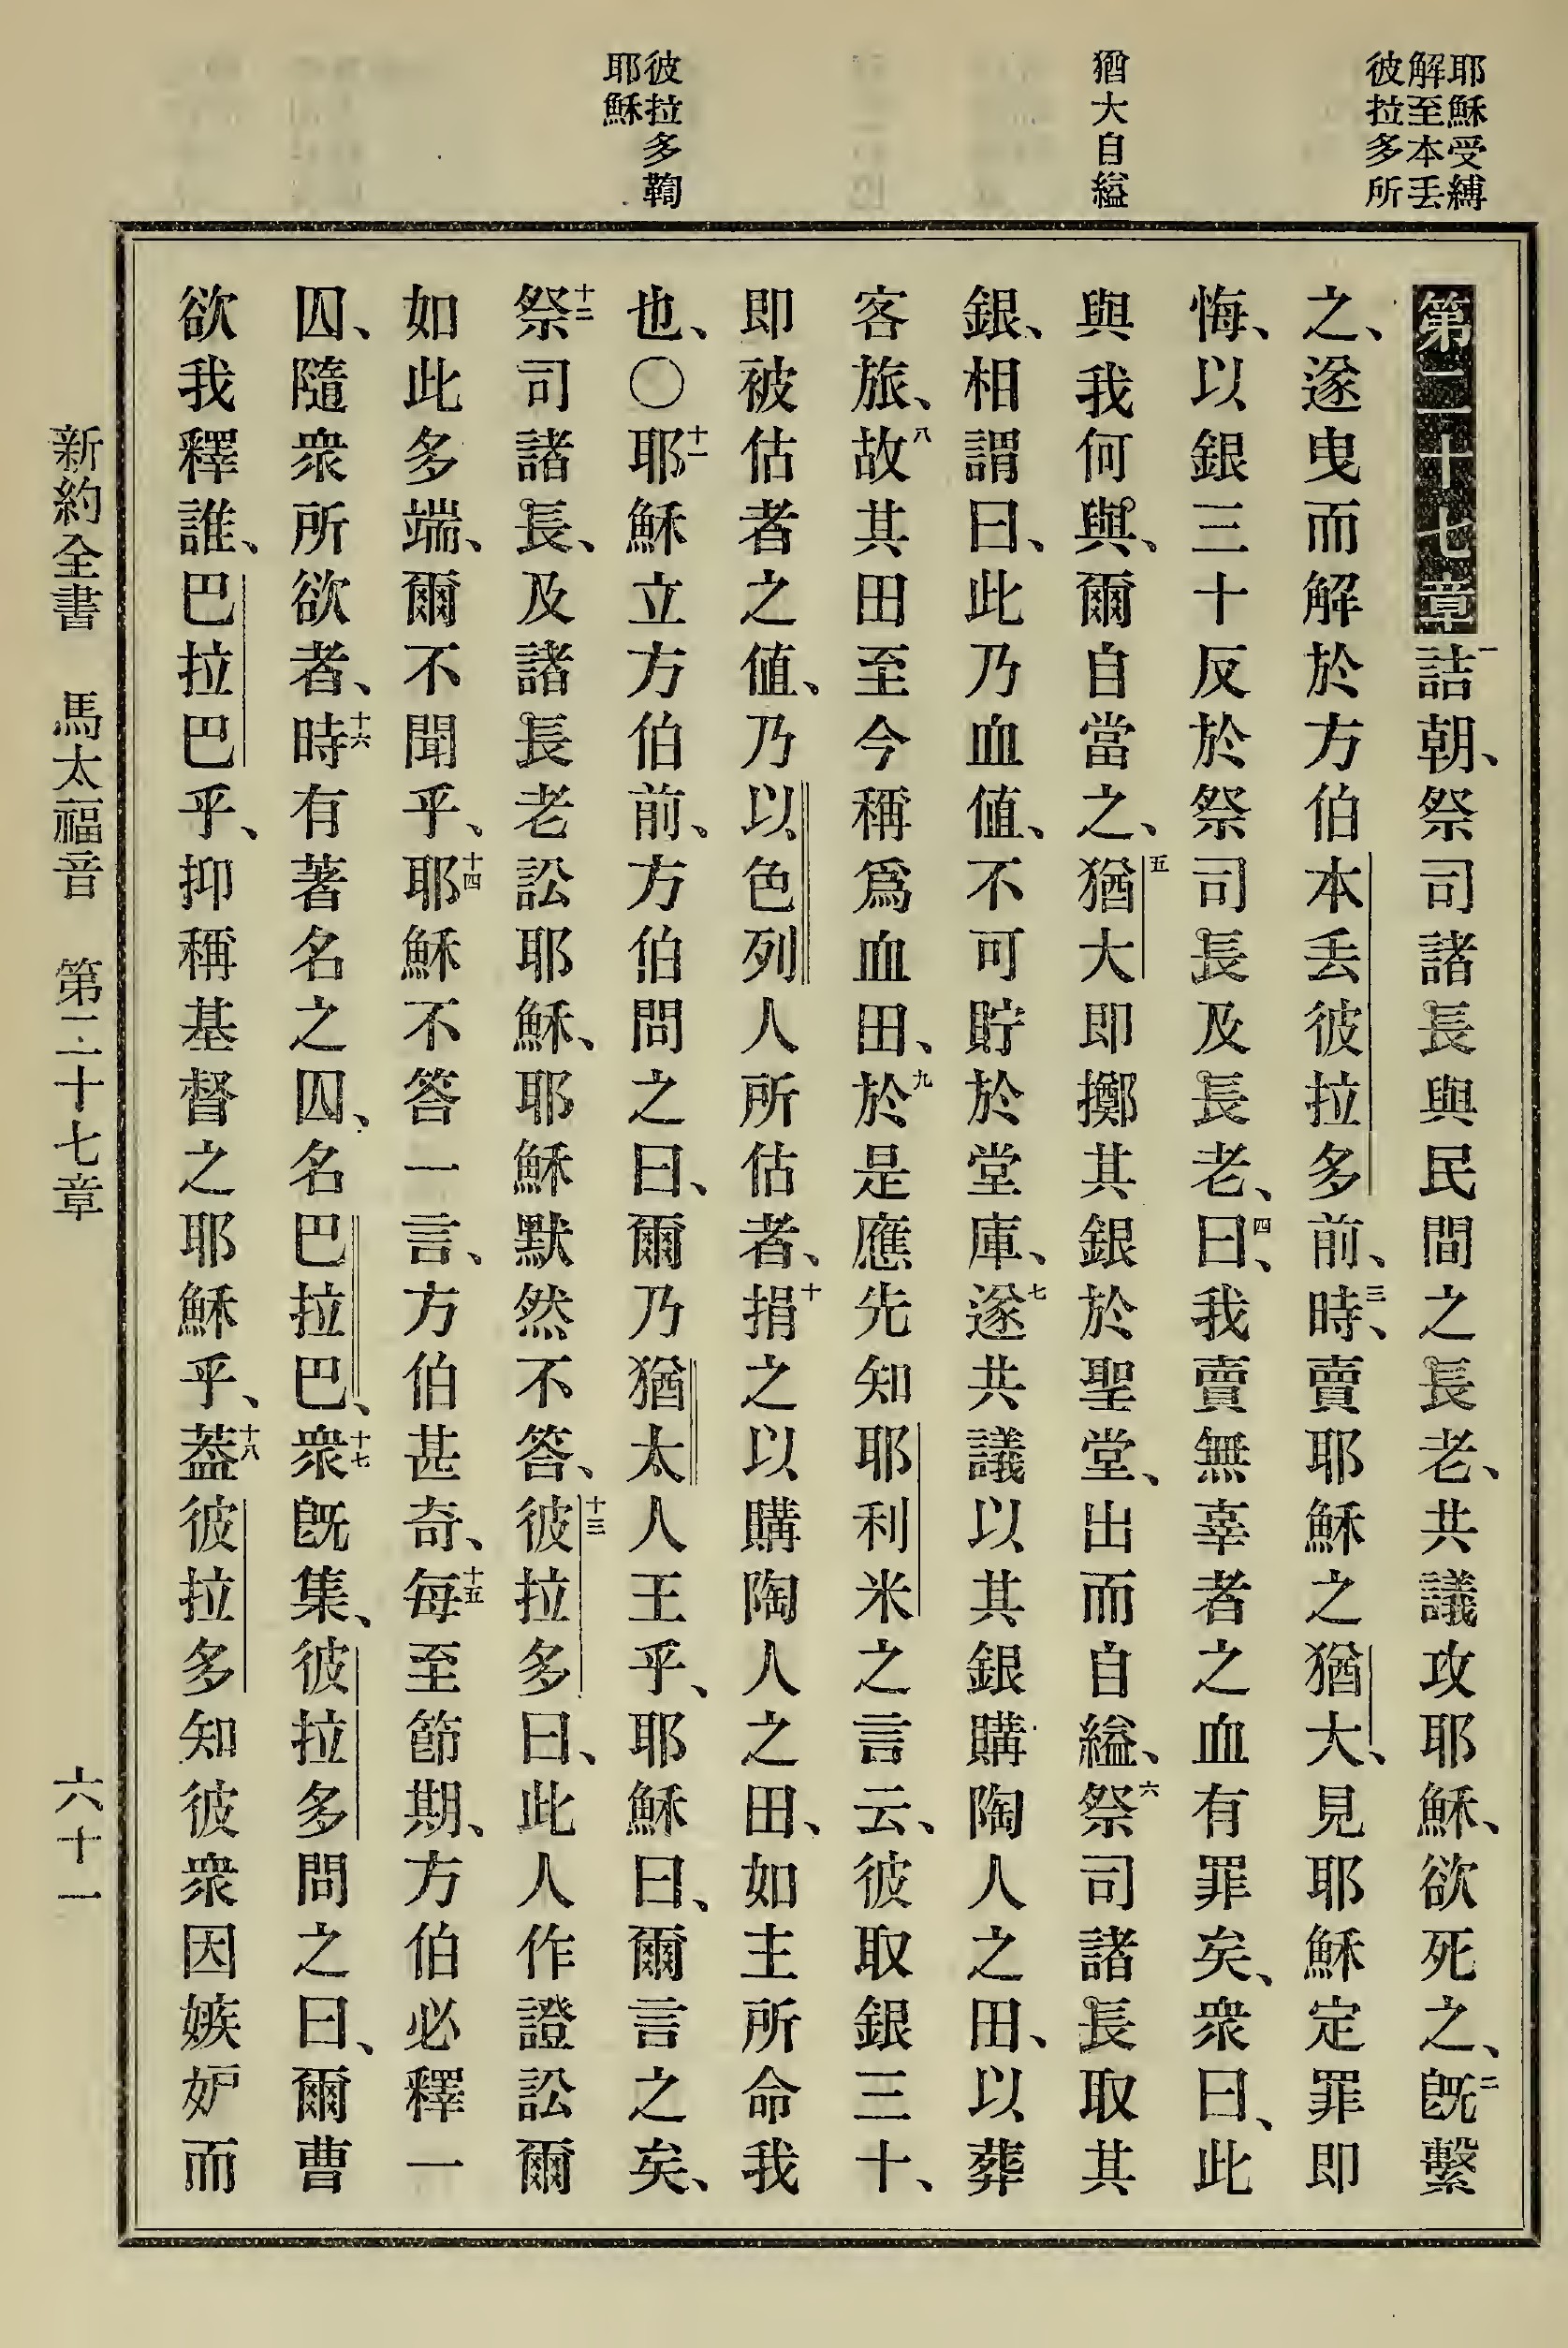 耶穌受縛
解至本丢
彼拉多所
猶大自縊
彼拉多鞫
耶穌
第二十七章一詰朝、祭司諸長與民間之長老、共議攻耶穌、欲死之、二旣繫
之、遂曳而解於方伯本丢彼拉多前、三時、賣耶穌之猶大、見耶穌定罪即
悔、以銀三十反於祭司長及長老、四曰、我賣無辜者之血有罪矣、衆曰、此
與我何與、爾自當之、五猶大即擲其銀於聖堂、出而自縊、六祭司諸長取其
銀、相謂曰、此乃血值、不可貯於堂庫、七遂共議以其銀購陶人之田、以葬
客旅、八故其田至今稱爲血田、九於是應先知耶利米之言云、彼取銀三十、
即被估者之值、乃以色列人所估者、十捐之以購陶人之田、如主所命我
也、〇十一耶穌立方伯前、方伯問之曰、爾乃猶太人王乎、耶穌曰、爾言之矣、
十二祭司諸長、及諸長老訟耶穌、耶穌默然不答、十三彼拉多曰、此人作證訟爾
如此多端、爾不聞乎、十四耶穌不答一言、方伯甚奇、十五每至節期、方伯必釋一
囚、隨衆所欲者、十六時有著名之囚、名巴拉巴、十七衆旣集、彼拉多問之曰、爾曹
欲我釋誰、巴拉巴乎、抑稱基督之耶穌乎、十八蓋彼拉多知彼衆因嫉妒而
新約全書 馬太福音 第二十七章 六十一